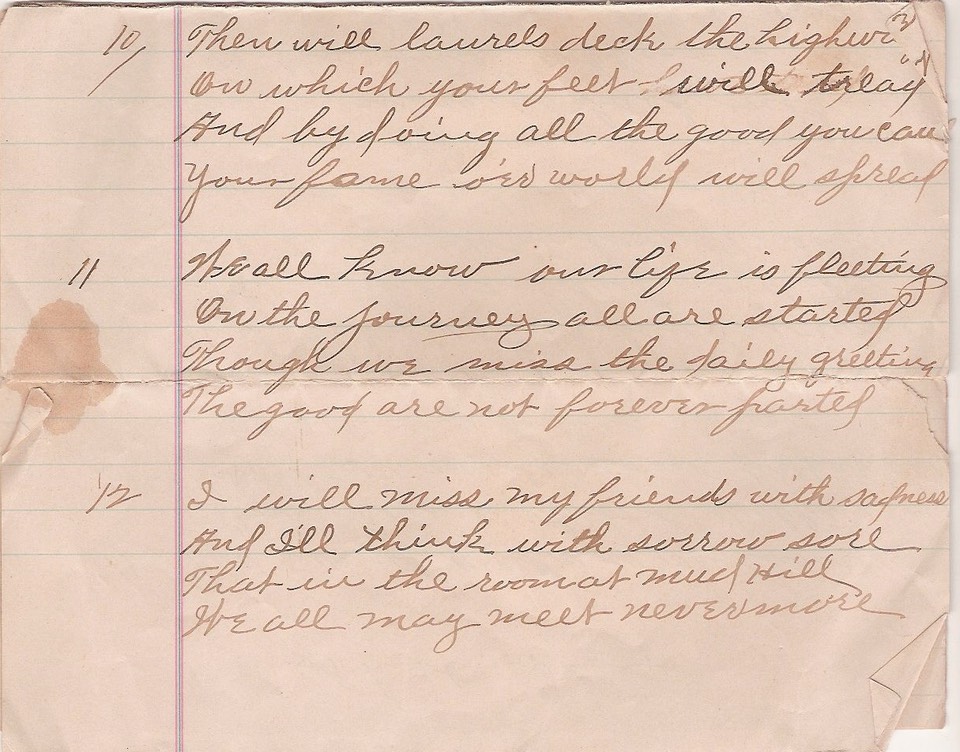 10/ Then will laurels deck the highwa
On which your feet will tread
And by doing all the good you can
Your fame o'er world will spread
11 We all know our life is fleeting
On the journey all are started
Though we miss the daily greeting
The good are not forever parted
12 I will miss my friends with sadness
And I'll think with sorrow sore
That in the room at Mud Hill
We all may meet nevermore